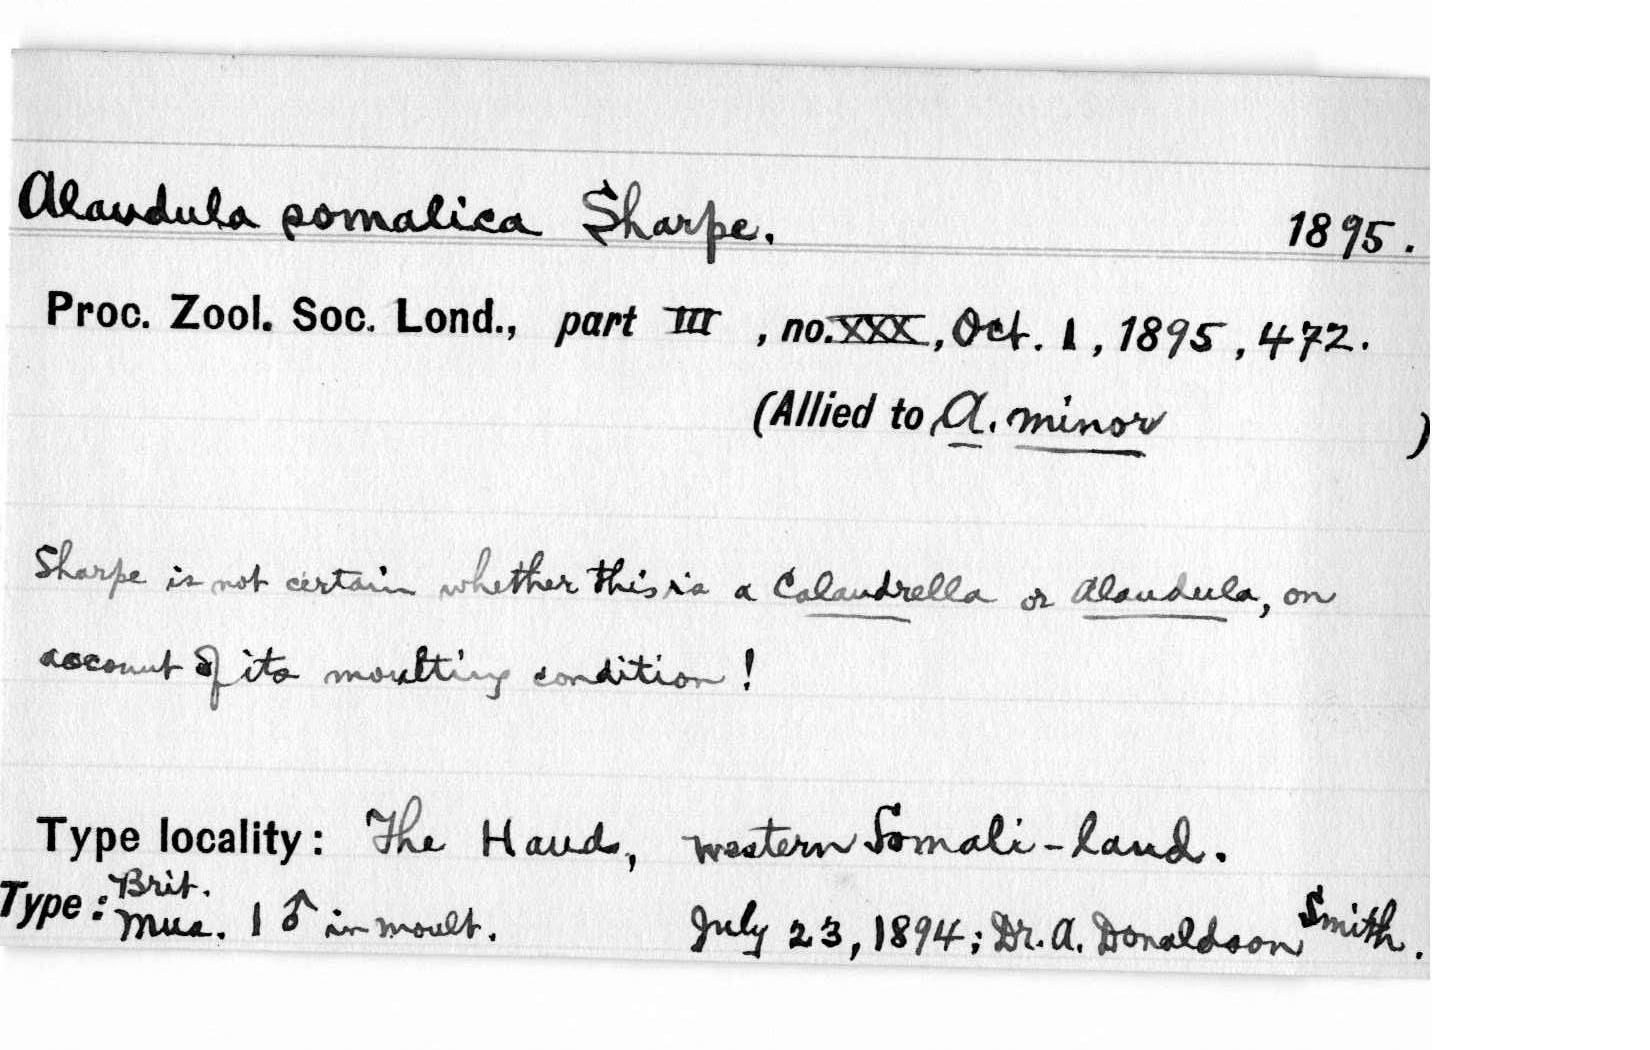 Alaudula somalica Sharpe. 1895.
Proc. Zool. Soc. Lond., part III, no. XXX, Oct. 1, 1895, 472.
(Allied to A. minor )
Sharpe is not certain whether this is a Calandrella or Alaudula, on
account of its moulting condition!
Type locality: The Haud, western Somali-land.
Type: Brit. Mus. 1 ♂ in moult. July 23, 1894; Dr. A. Donaldson Smith.